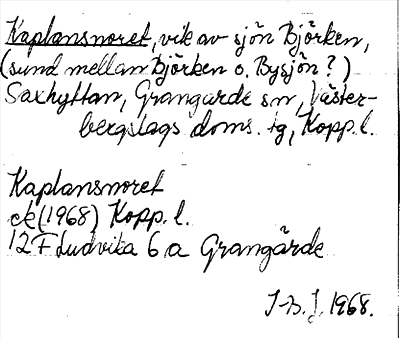 Kaplansnoret, vik av sjön Björken,
(sund mellan Björken o. Bysjön?)
Saxhyttan, Grangärde sn, Väster-
bergslags doms. tg, Kopp. l.
Kaplansnoret
ek (1968) Kopp. l.
12 F Ludvika 6 a Grangärde
J-B. J. 1968.